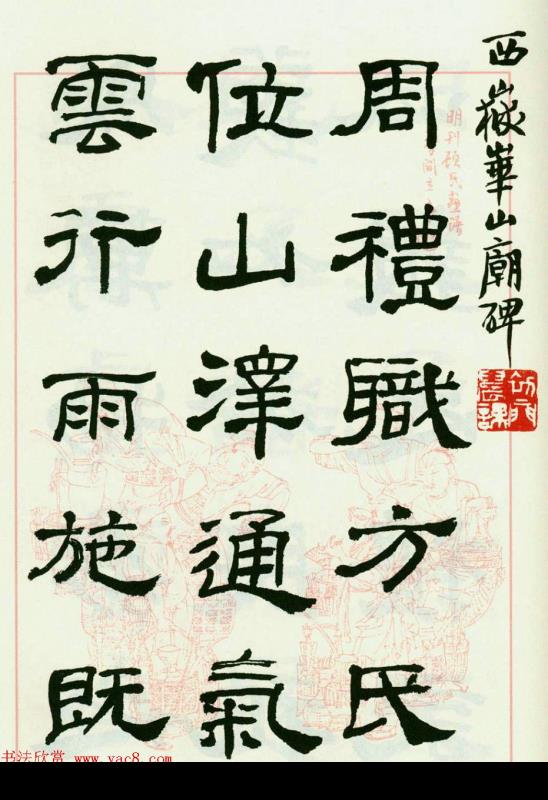 西嶽華山廟碑
周禮職方氏
位山澤通氣
雲行雨施既
明刊顧氏畫譜
书法欣赏 www.yac8.com